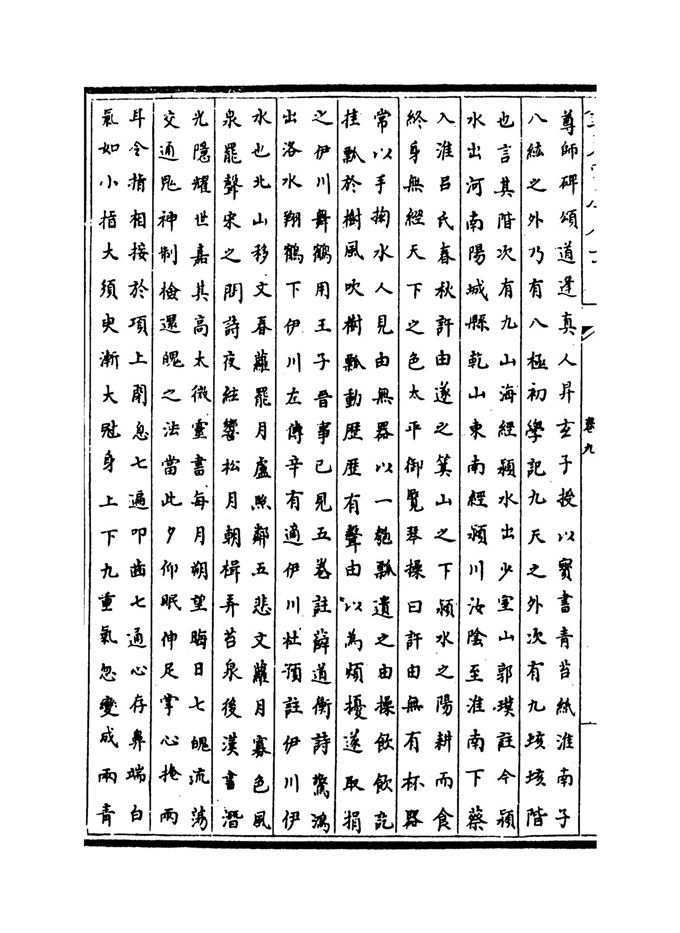 尊師碑頌道逢真人昇玄子授以寳書青苔紙淮南子
八絃之外乃有八極初學記九天之外次有九垓垓階
也言其階次有九山海經潁水出少室山郭璞註今潁
水出河南陽城縣乾山東南經潁川汝隂至淮南下蔡
入淮吕氏春秋許由遂之箕山之下潁水之陽耕而食
終身無經天下之色太平御覧琴操曰許由無有杯器
常以手掬水人見由無器以一匏瓢遺之由操飲飲訖
挂瓢於樹風吹樹瓢動歴歴有聲由以為煩擾遂取捐
之伊川舞鶴用王子晉事已見五卷註薛道衡詩驚鴻
出洛水翔鶴下伊川左傳辛有適伊川杜預註伊川伊
水也北山移文春蘿罷月盧照鄰五悲文蘿月寡色風
泉罷聲宋之問詩夜絃響松月朝楫弄苔泉後漢書潛
光隱耀世嘉其高太微靈書每月朔望晦日七魄流蕩
交通鬼神制檢還魄之法當此夕仰眠伸足掌心掩兩
耳令指相接於項上閉息七遍叩齒七通心存鼻端白
氣如小指大須臾漸大冠身上下九重氣忽變成兩青
卷九